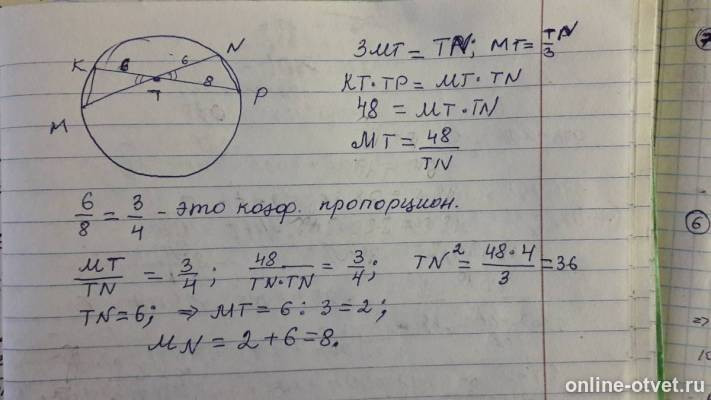 K
6
6
N
T
8
P
M
3MT = TN; MT = TN/3
KT·TP = MT·TN
48 = MT·TN
MT = 48/TN
6/8 = 3/4 - это коэф. пропорцион.
MT/TN = 3/4; 48/TN·TN = 3/4; TN² = 48·4/3 = 36
TN = 6; ⇒ MT = 6 : 3 = 2;
MN = 2 + 6 = 8.
6
online-otvet.ru